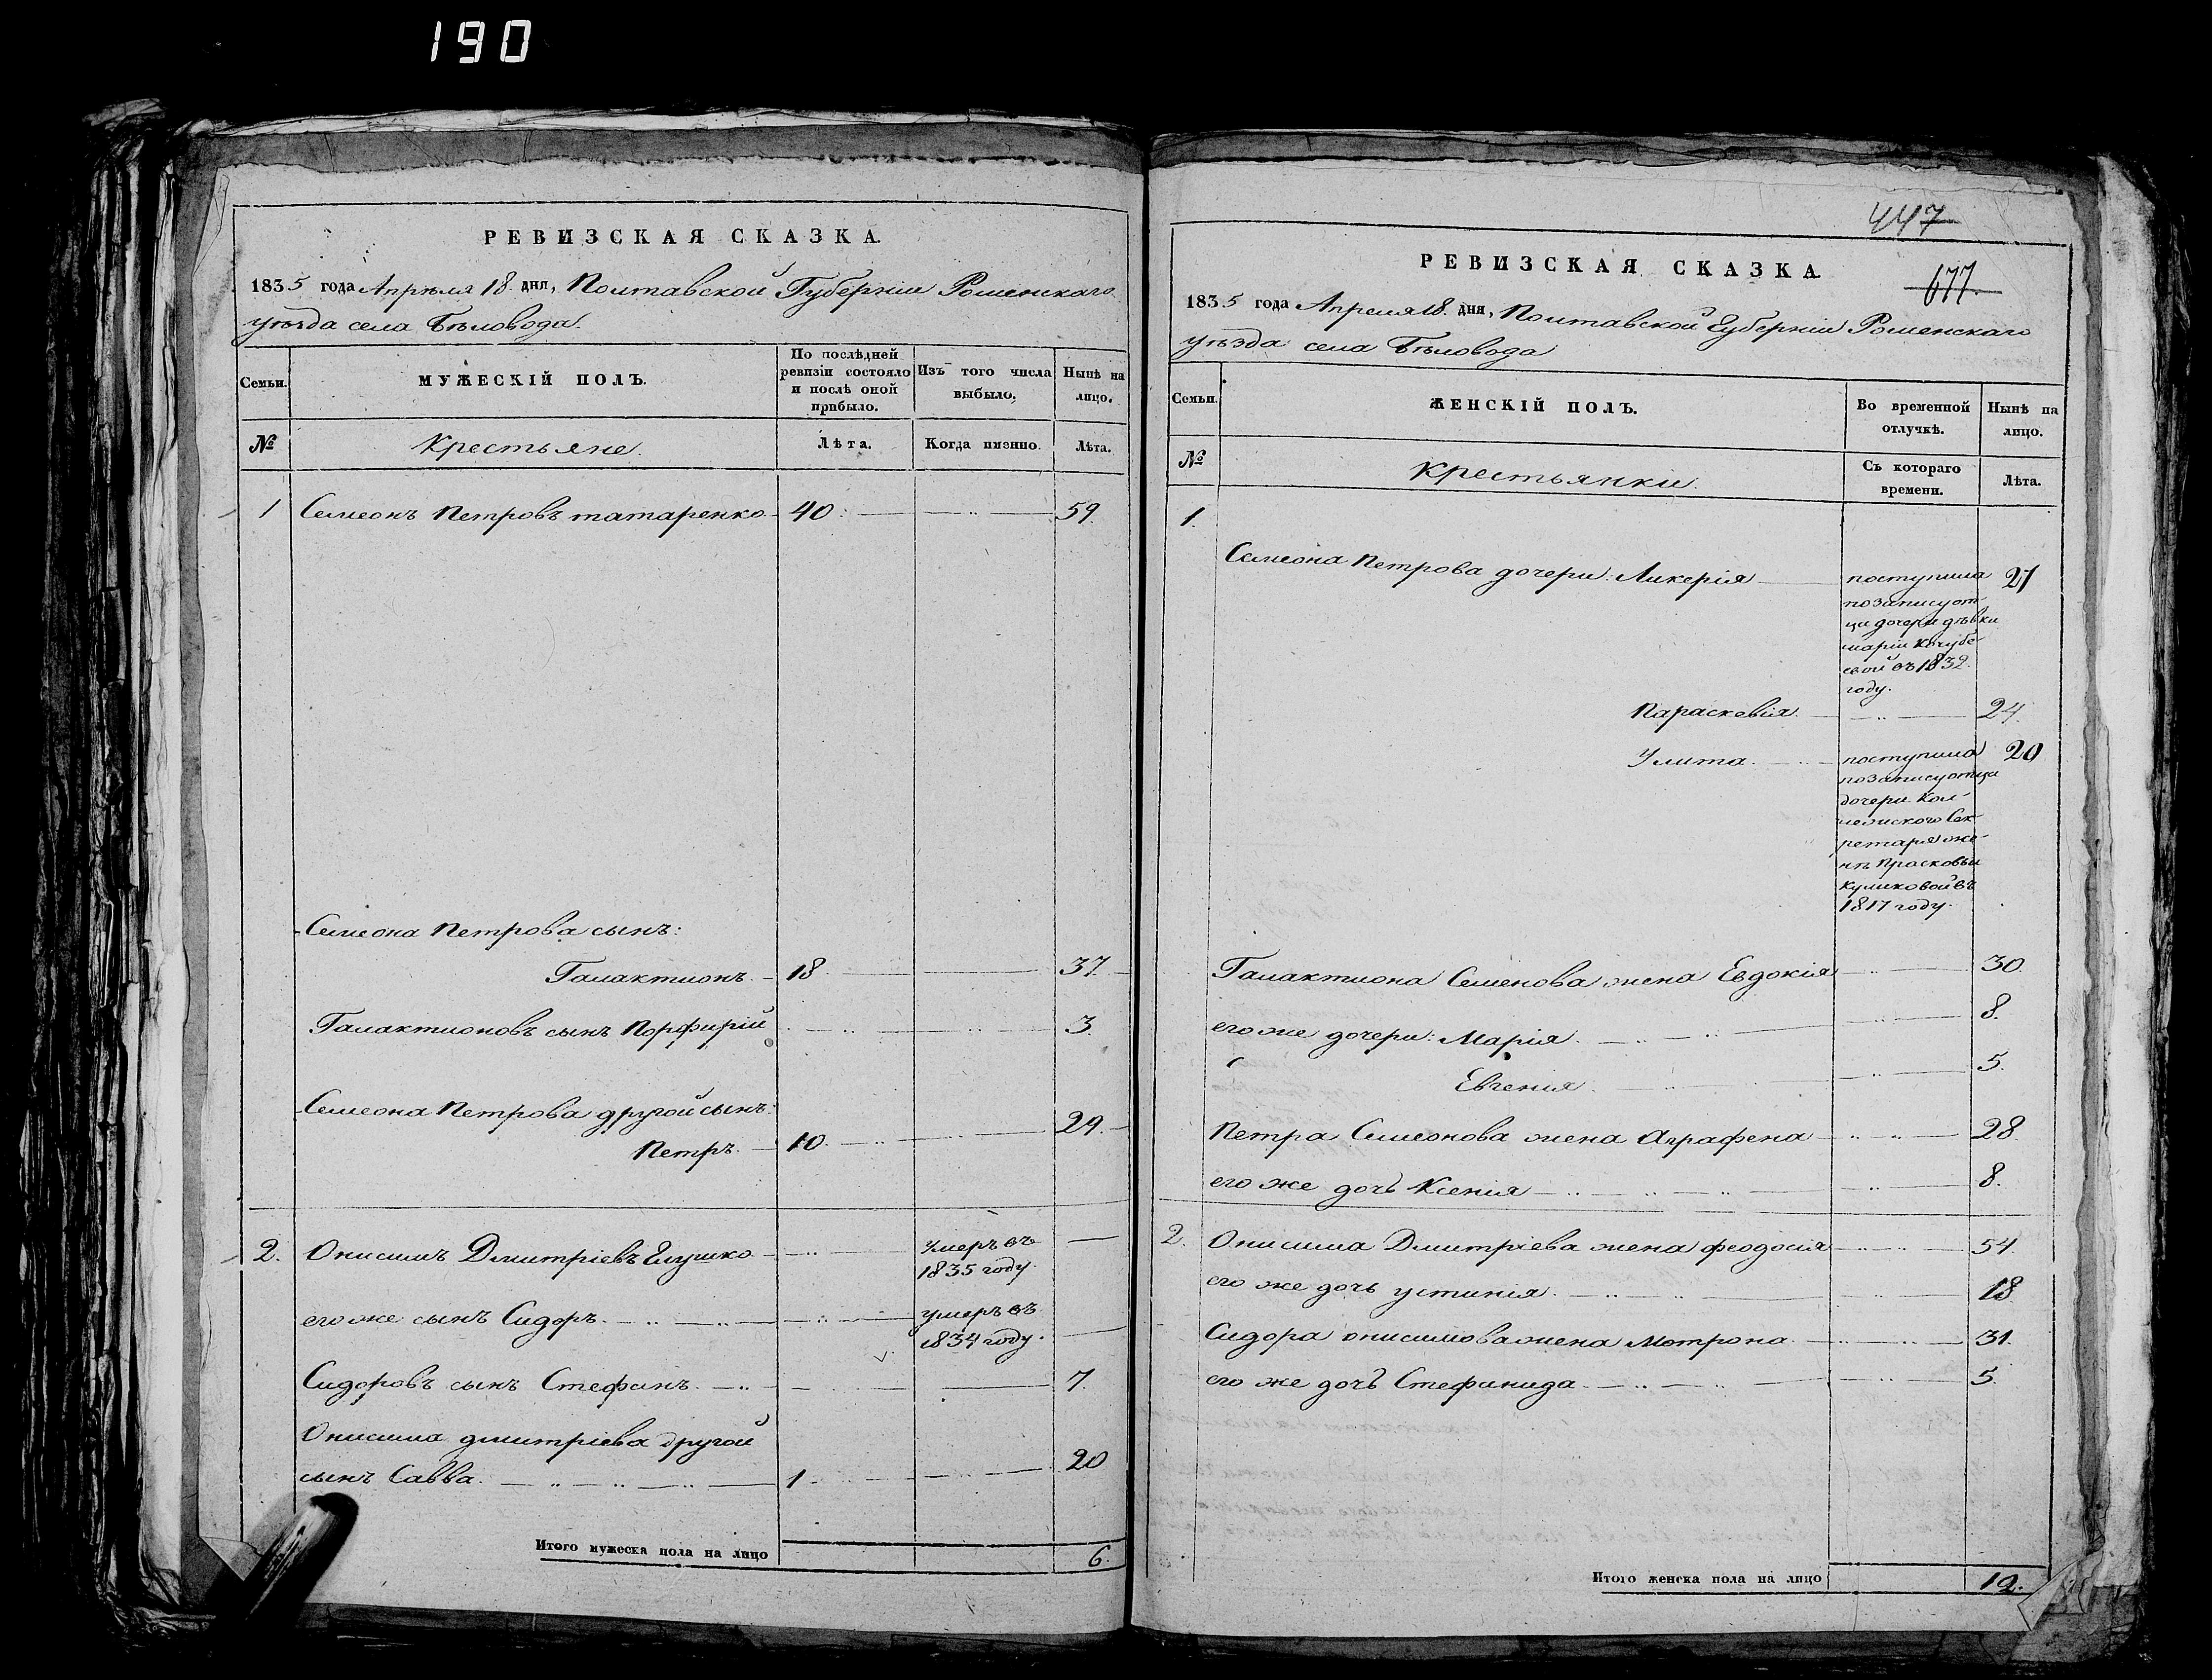 190
РЕВИЗСКАЯ СКАЗКА.
1835 года Апрѣля 18 дня, Полтавской Губерніи Роменскаго
уѣзда села Бѣловода.
Семьи.
МУЖЕСКІЙ ПОЛЪ.
По послѣдней ревизіи состояло и послѣ оной прибыло.
Изъ того числа выбыло.
Нынѣ на лицо.
№
Крестьяне.
Лѣта.
Когда имянно.
Лѣта.
1 Семеонъ Петровъ татаренко 40 59.
Семеона Петрова сынъ:
Галактионъ 18 37.
Галактионовъ сынъ Порфирій 3.
Семеона Петрова другой сынъ:
Петръ 10. 29.
2. Онисимъ Дмитріевъ Глушко умеръ въ
1835 году.
его же сынъ Сидоръ умеръ въ
1834 году.
Сидоровъ сынъ Стефанъ 7.
Онисима дмитріева другой
сынъ Савва. 1 20
Итого мужеска пола на лицо 6.
447
677.
РЕВИЗСКАЯ СКАЗКА
1835 года Апреля 18. дня, Полтавской Губерніи Роменскаго
уѣзда села Бѣловода
Семьи.
ЖЕНСКІЙ ПОЛЪ.
Во временной отлучкѣ.
Нынѣ на лицо.
№
Крестьянки.
Съ котораго времени.
Лѣта.
1.
Семеона Петрова дочери: Ликерія поступила 27
по запису от-
ца дочери дѣвки
маріи Кочубе-
евой въ 1832.
году.
Параскевія. 24.
Улита. поступила 20
по запису отца
дочери Кол-
лежского Сек-
ретаря же-
нѣ Прасковьи
Куликовой въ
1817 году.
Галактиона Семенова жена Евдокія 30.
его же дочери: Марія. 8.
Евгения 5.
Петра Семеонова жена Аграфена 28
его же дочь Ксения 8.
2. Онисима Дмитріева жена феодосія 54.
его же дочь устинія. 18
Сидора онисимова жена Мотрона 31.
его же дочь Стефанида 5.
Итого женска пола на лицо 12.